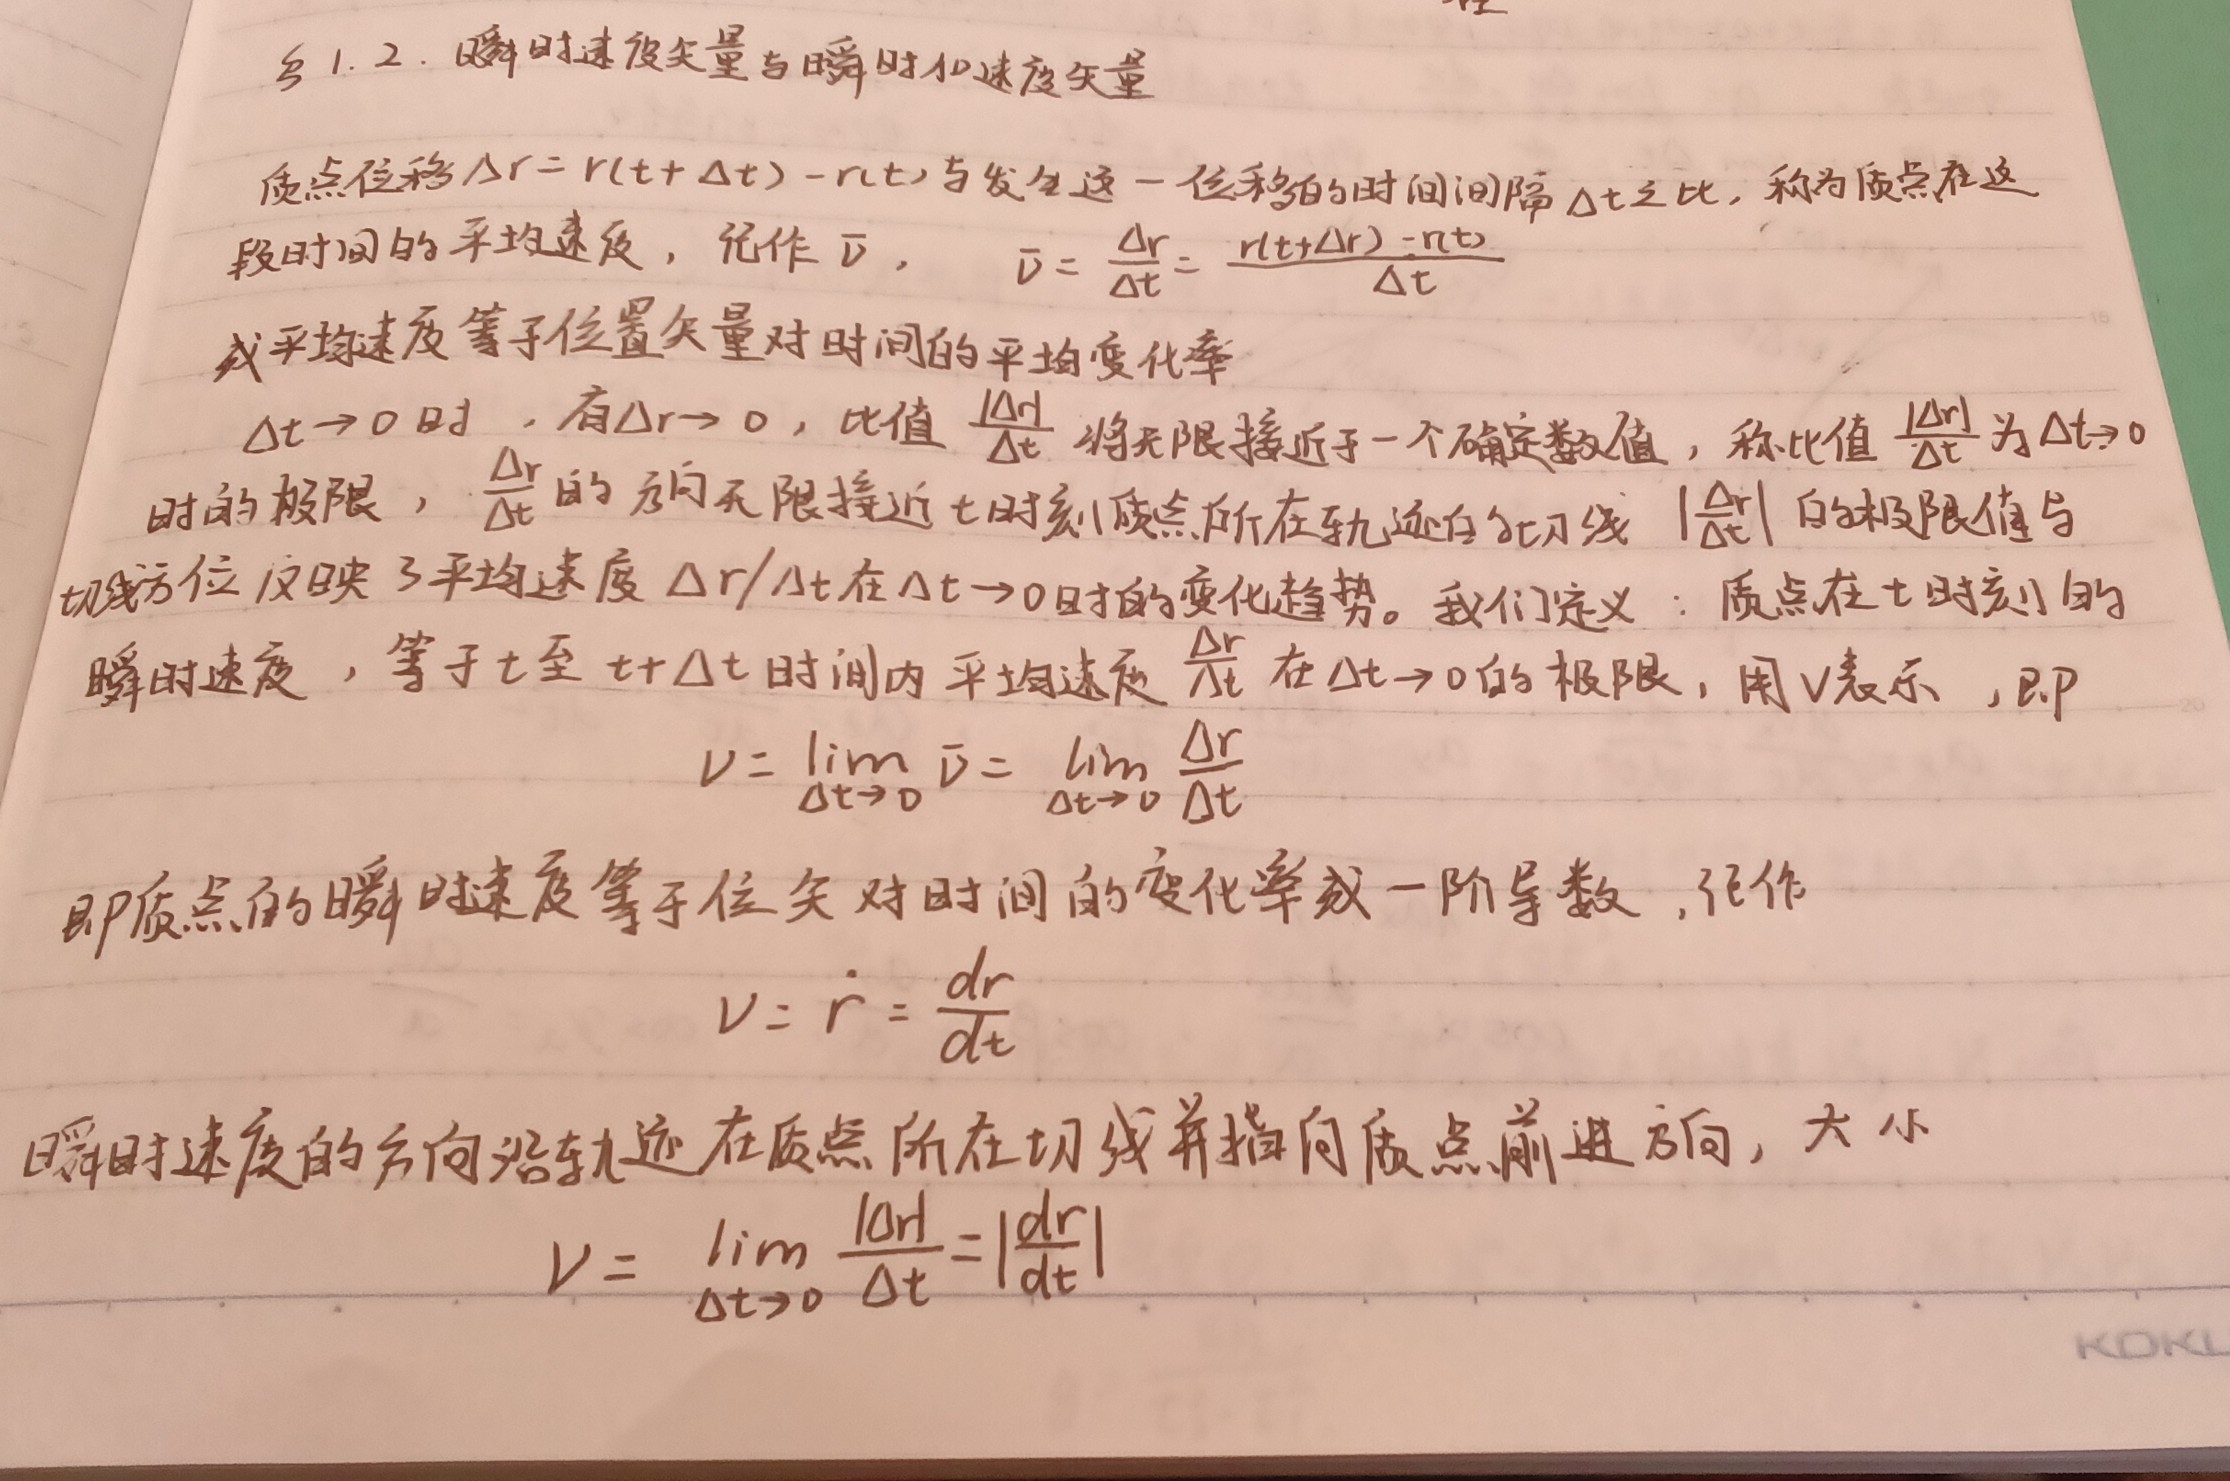 §1.2. 瞬时速度矢量与瞬时加速度矢量
质点位移Δr=r(t+Δt)-r(t)与发生这一位移的时间间隔Δt之比，称为质点在这
段时间的平均速度，记作 v̄， v̄ = Δr/Δt = (r(t+Δr)-r(t))/Δt
或平均速度等于位置矢量对时间的平均变化率
Δt→0时，有Δr→0，比值 |Δr|/Δt 将无限接近于一个确定数值，称比值 |Δr|/Δt 为Δt→0
时的极限，Δr/Δt 的方向无限接近t时刻质点所在轨迹的切线 |Δr/Δt| 的极限值与
切线方位反映了平均速度Δr/Δt在Δt→0时的变化趋势。我们定义：质点在t时刻的
瞬时速度，等于t至t+Δt时间内平均速度 Δr/Δt 在Δt→0的极限，用V表示，即
v = lim_{Δt→0} v̄ = lim_{Δt→0} Δr/Δt
即质点的瞬时速度等于位矢对时间的变化率或一阶导数，记作
v = ṙ = dr/dt
瞬时速度的方向沿轨迹在质点所在切线并指向质点前进方向，大小
V = lim_{Δt→0} |Δr|/Δt = |dr/dt|